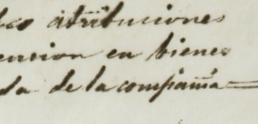 atribuciones
ension en bienes
da de la compañia